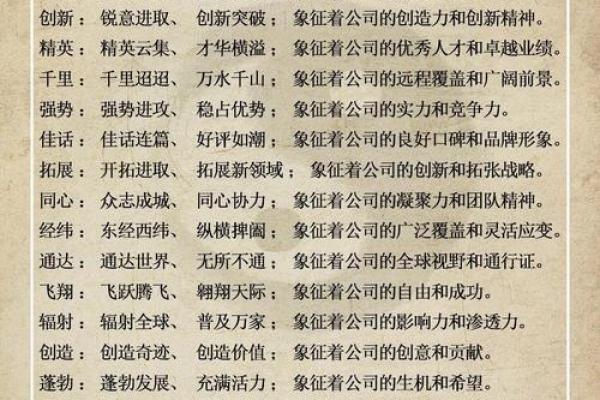 创新：锐意进取、创新突破；象征着公司的创造力和创新精神。
精英：精英云集、才华横溢；象征着公司的优秀人才和卓越业绩。
千里：千里迢迢、万水千山；象征着公司的远程覆盖和广阔前景。
强势：强势进攻、稳占优势；象征着公司的实力和竞争力。
佳话：佳话连篇、好评如潮；象征着公司的良好口碑和品牌形象。
拓展：开拓进取、拓展新领域；象征着公司的创新和拓张战略。
同心：众志成城、同心协力；象征着公司的凝聚力和团队精神。
经纬：东经西纬、纵横捭阖；象征着公司的广泛覆盖和灵活应变。
通达：通达世界、无所不通；象征着公司的全球视野和通行证。
飞翔：飞跃腾飞、翱翔天际；象征着公司的自由和成功。
辐射：辐射全球、普及万家；象征着公司的影响力和渗透力。
创造：创造奇迹、创造价值；象征着公司的创意和贡献。
蓬勃：蓬勃发展、充满活力；象征着公司的生机和希望。